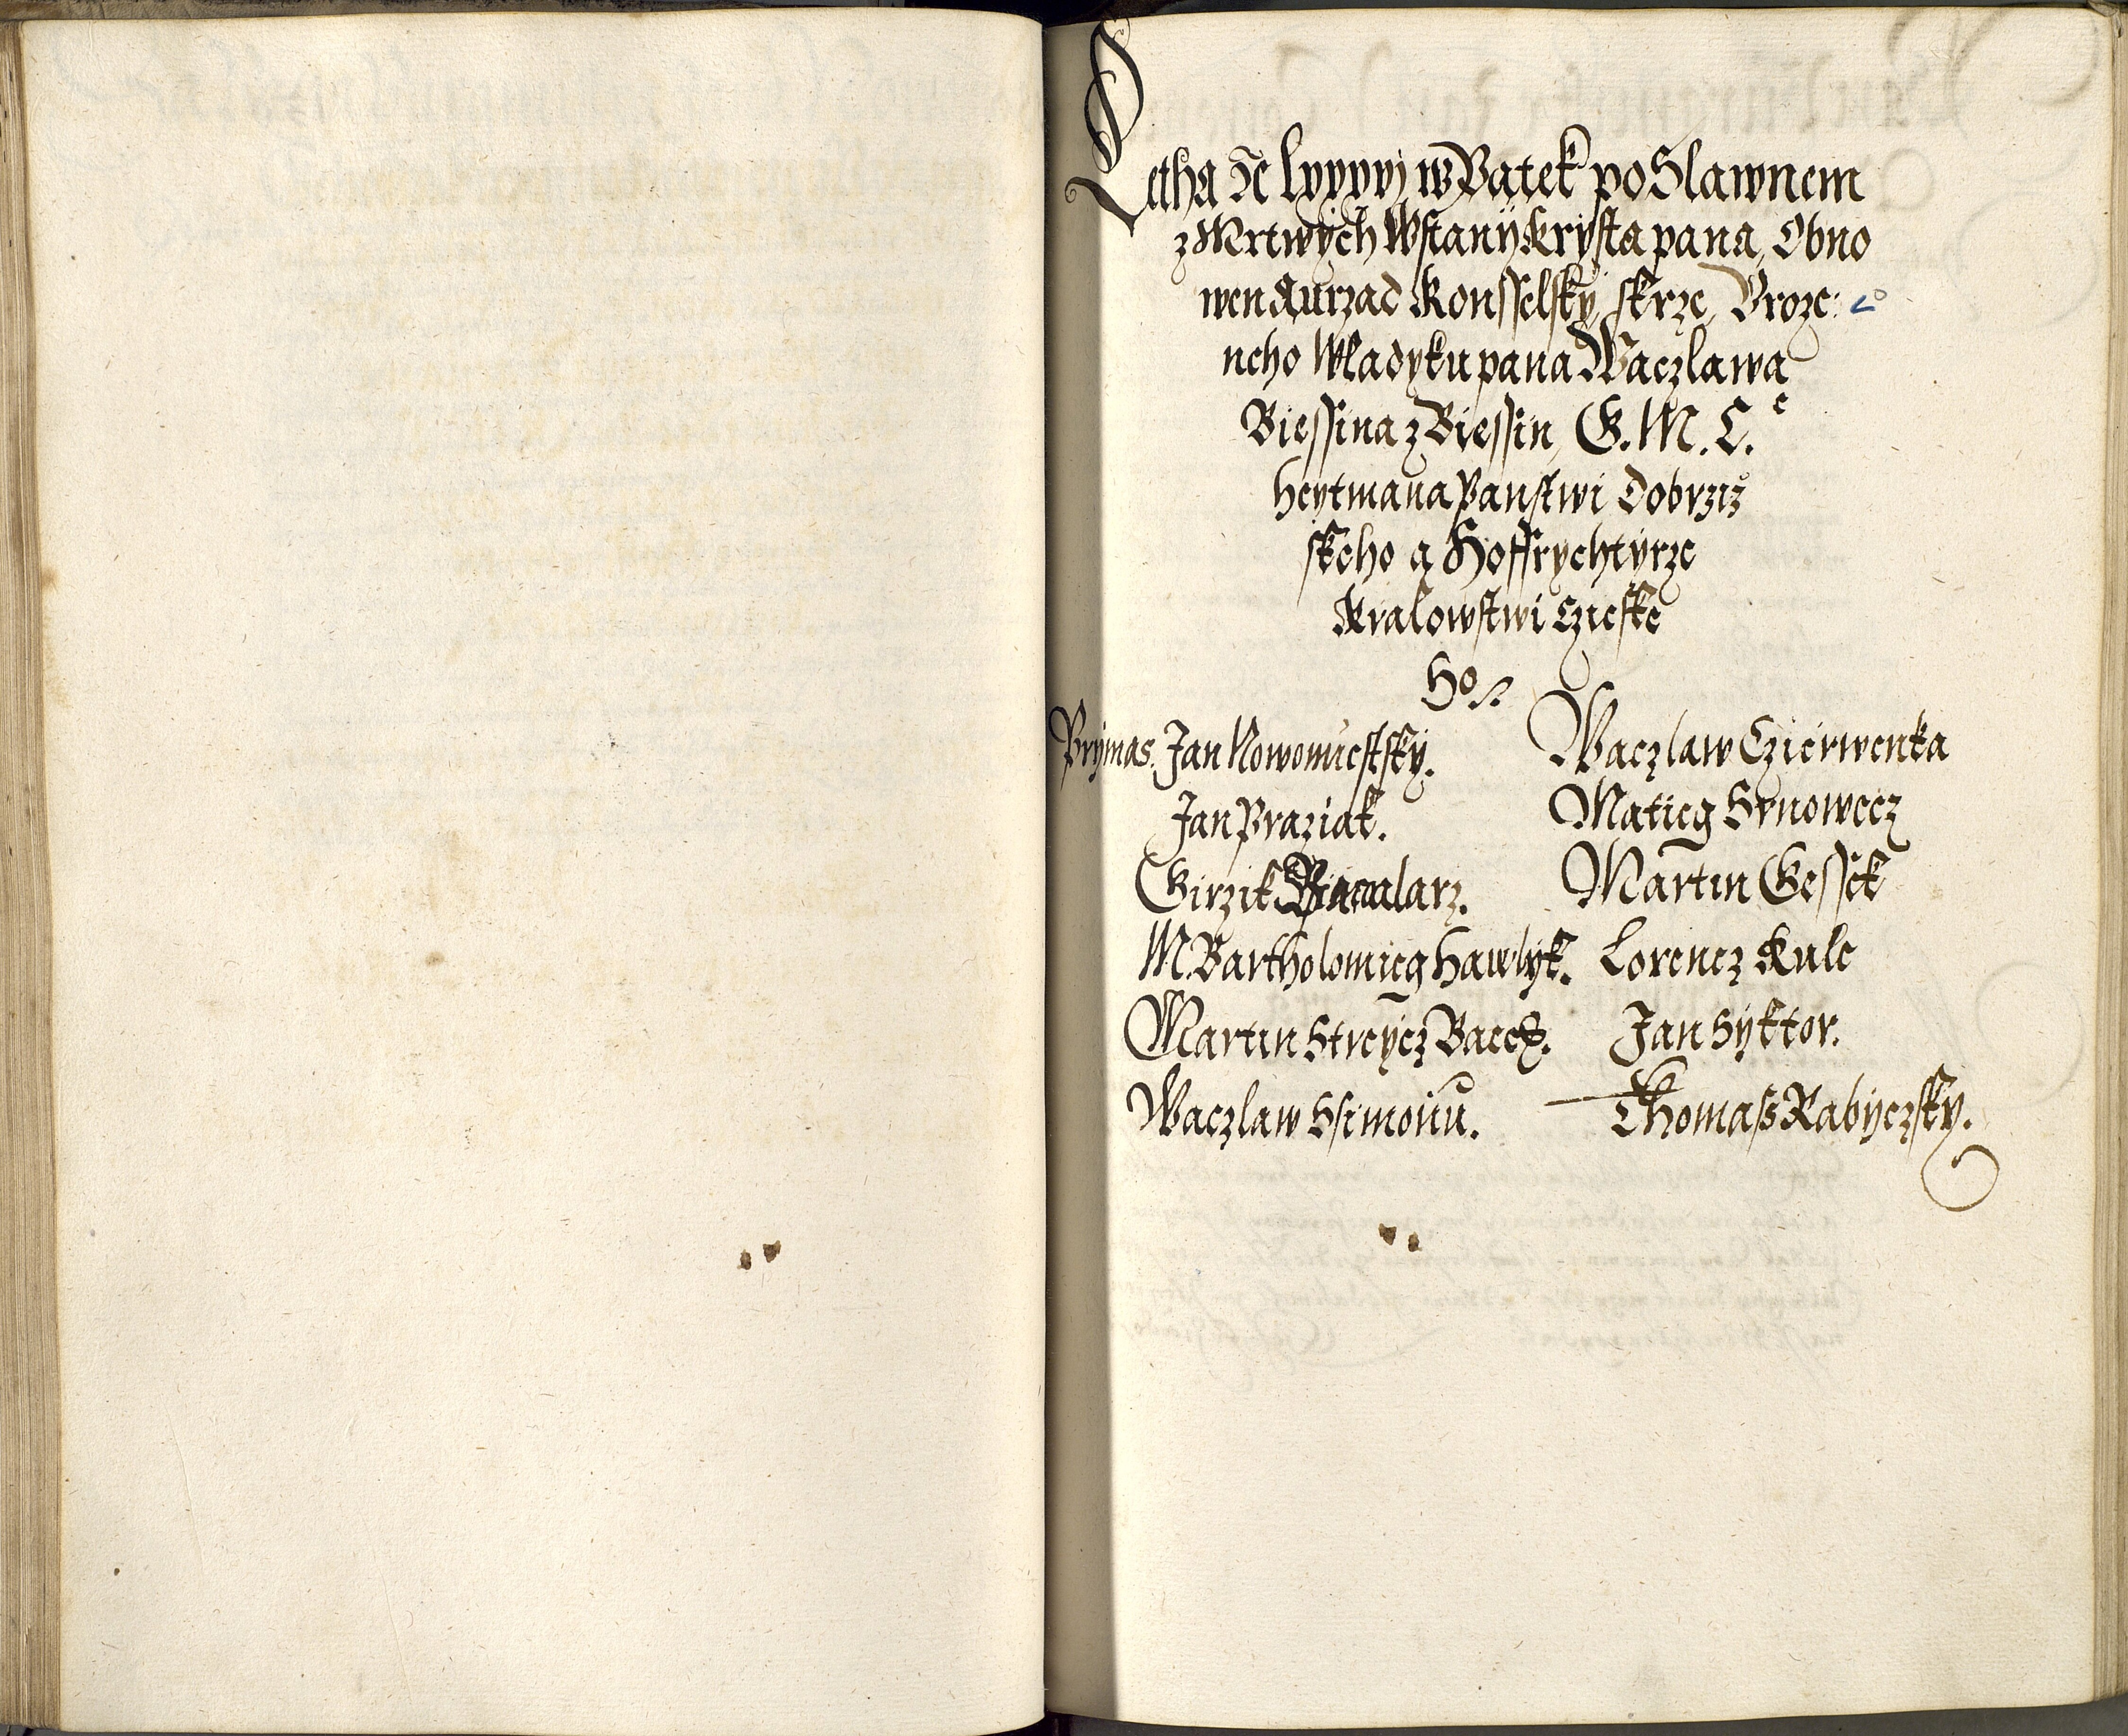 Letha ꝛc lxxxxj w Patek po Slawnem
z Mrtwych Wstanij Krysta pana, Obno
wen a urzad Konsselsky skrze, Uroze:
neho Wladyku pana Waczlawa
Biessina z Biessin, G. M. C.
heytmana Panstwi Dobrzis
skeho a Hoffrychtyrze
Kralowstwi Czieske
Ho.
Prymas. Jan Nowomiestsky. Waczlaw Czierwenka
Jan Praziak. Matieg Srnowecz
Girzik Bacalarz. Martin Gessek
M. Bartholomieg Hawlyk. Lorencz Kule
Martin Streycz Jan Syktor.
Waczlaw Ssimonu. Thomass Rabyczsky.